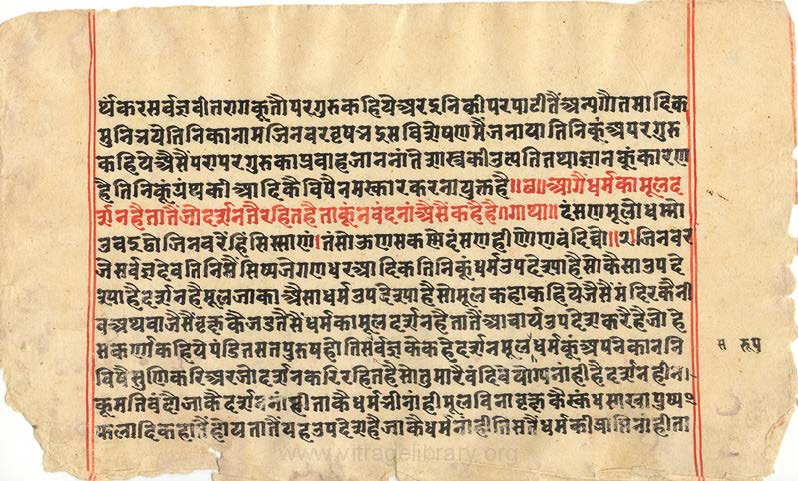 र्थंकरसर्वज्ञवीतरागकूतौपरगुरुकहियेअरइनिकीपरपाटीतैंअन्यगौतमादिक
मुनिभयेतिनिकानामजिनवरवृषभइसविशेषणमैंजनायातिनिकूंअपरगुरु
कहियेअैसैंपरापरगुरुकाप्रवाहजाननांतेशास्त्रकीउत्पत्तितथाज्ञानकूंकारण
हैतिनिकूंग्रंथकीआदिकैविषैनमस्कारकरनायुक्तहै॥छ॥आगैंधर्मकामूलद
र्शनहैतातैंजोदर्शनतैंरहितहैताकूंनवंदनांअैसैंकहैहै॥गाथा॥दंसणमूलोधम्मो
उवइट्ठोजिनवरेहिंसिस्साणं।तंसोऊणसकण्णेदंसणहीणोणवंदिव्वो॥२॥जिनवर
जेसर्वज्ञदेवतिनिसैंसिष्यजेगणधरआदिकतिनिकूंधर्मउपदेश्याहैसोकैसाउपदे
श्याहैदर्शनहैमूलजाकाअैसाधर्मउपदेश्याहैसोमूलकहाकहियेजैसैंमंदिरकैनी
वअथवाजैसैंवृक्षकैजडतैसैंधर्मकामूलदर्शनहैतातैंआचार्यउपदेशकरैहैजोहे
सकर्णकहियेपंडितसतपुरुषहोतिसर्वज्ञकेकहेदर्शनमूलधर्मकूंअपनेकाननि
विषैसुणिकरिअरजोदर्शनकरिरहितहैसोतुमारैवंदिवेयोग्यनाहीहैदर्शनहीन।
कूमतिवंदौजाकैदर्शननांहीताकैधर्मभीनांहीमूलविनावृक्षकैस्कंधसाखापुष्प
फलादिककहांतैंहोयतातैंयहउपदेशहैजाकैधर्मनांहीतिसतैंधर्मकीप्राप्तिनांहीता
www.vitragelibrary.org